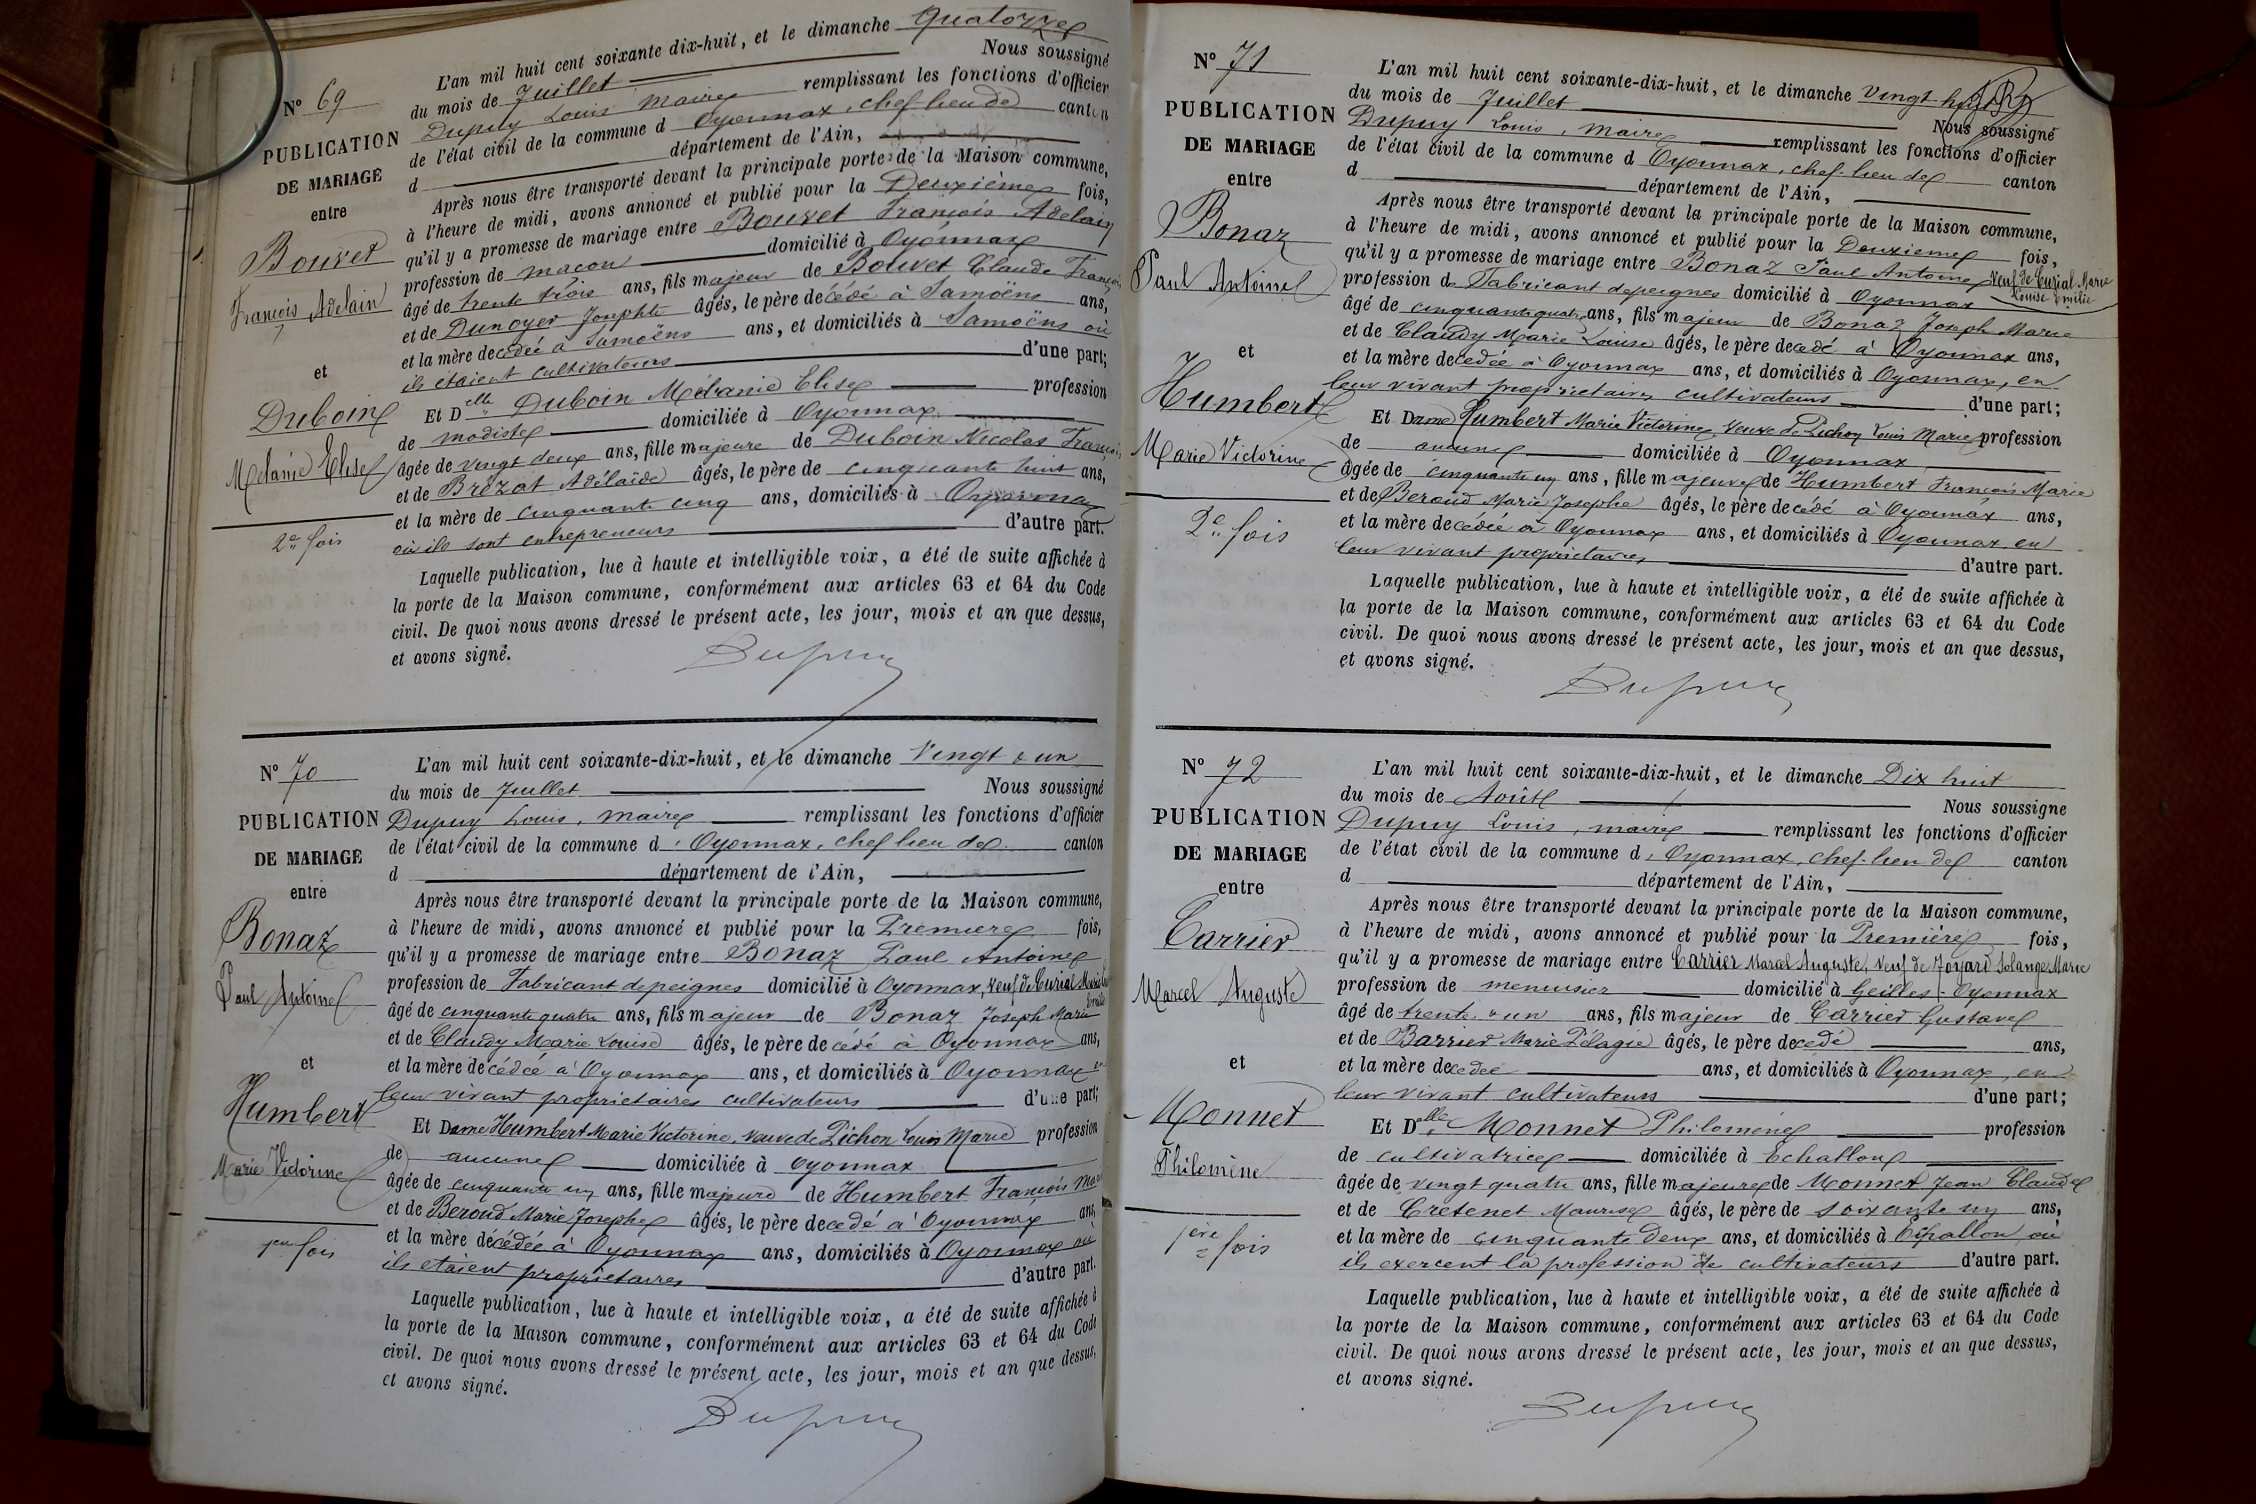 N° 69
PUBLICATION
DE MARIAGE
entre
Bouvet
François Adelain
et
Duboin
Mélanie Elise
2e fois
L'an mil huit cent soixante dix-huit, et le dimanche Quatorze
du mois de Juillet Nous soussigné
Dupuy Louis Maire remplissant les fonctions d'officier
de l'état civil de la commune d Oyonnax, chef-lieu de canton
d département de l'Ain,
Après nous être transporté devant la principale porte de la Maison commune,
à l'heure de midi, avons annoncé et publié pour la Deuxième fois,
qu'il y a promesse de mariage entre Bouvet François Adelain
profession de maçon domicilié à Oyonnax
âgé de trente trois ans, fils majeur de Bouvet Claude François
et de Dunoyer Josephte âgés, le père décédé à Samoëns ans,
et la mère decédée à Samoëns ans, et domiciliés à Samoëns où
ils étaient cultivateurs d'une part;
Et Delle Duboin Mélanie Elise profession
de modiste domiciliée à Oyonnax
âgée de vingt deux ans, fille majeure de Duboin Nicolas François
et de Brézat Adélaïde âgés, le père de cinquante huit ans,
et la mère de cinquante cinq ans, domiciliés à Oyonnax
où ils sont entrepreneurs d'autre part.
Laquelle publication, lue à haute et intelligible voix, a été de suite affichée à
la porte de la Maison commune, conformément aux articles 63 et 64 du Code
civil. De quoi nous avons dressé le présent acte, les jour, mois et an que dessus,
et avons signé.
Dupuy
N° 70
PUBLICATION
DE MARIAGE
entre
Bonaz
Paul Antoine
et
Humbert
Marie Victorine
1ere fois
L'an mil huit cent soixante-dix-huit, et le dimanche Vingt & un
du mois de Juillet Nous soussigné
Dupuy Louis, maire remplissant les fonctions d'officier
de l'état civil de la commune d Oyonnax, chef lieu de canton
d département de l'Ain,
Après nous être transporté devant la principale porte de la Maison commune,
à l'heure de midi, avons annoncé et publié pour la Première fois,
qu'il y a promesse de mariage entre Bonaz Paul Antoine
profession de Fabricant de peignes domicilié à Oyonnax, veuf de Curial Marie Louise Emilie
âgé de cinquante quatre ans, fils majeur de Bonaz Joseph Marie
et de Claudy Marie Louise âgés, le père decédé à Oyonnax ans,
et la mère decédée à Oyonnax ans, et domiciliés à Oyonnax en
leur vivant propriétaires cultivateurs d'une part;
Et Dame Humbert Marie Victorine, veuve de Pichon Louis Marie profession
de aucune domiciliée à Oyonnax
âgée de cinquante un ans, fille majeure de Humbert François Marie
et de Beroud Marie Josephe âgés, le père decedé à Oyonnax ans,
et la mère décédée à Oyonnax ans, domiciliés à Oyonnax où
ils etaient propriétaires d'autre part.
Laquelle publication, lue à haute et intelligible voix, a été de suite affichée à
la porte de la Maison commune, conformément aux articles 63 et 64 du Code
civil. De quoi nous avons dressé le présent acte, les jour, mois et an que dessus,
et avons signé.
Dupuy
N° 71
PUBLICATION
DE MARIAGE
entre
Bonaz
Paul Antoine
et
Humbert
Marie Victorine
2e fois
L'an mil huit cent soixante-dix-huit, et le dimanche Vingt huit
du mois de Juillet Nous soussigné
Dupuy Louis, maire remplissant les fonctions d'officier
de l'état civil de la commune d Oyonnax, chef-lieu de canton
d département de l'Ain,
Après nous être transporté devant la principale porte de la Maison commune,
à l'heure de midi, avons annoncé et publié pour la Deuxième fois,
qu'il y a promesse de mariage entre Bonaz Paul Antoine veuf de Curial Marie Louise Emilie
profession de Fabricant de peignes domicilié à Oyonnax
âgé de cinquante quatre ans, fils majeur de Bonaz Joseph Marie
et de Claudy Marie Louise âgés, le père decedé à Oyonnax ans,
et la mère decedée à Oyonnax ans, et domiciliés à Oyonnax, en
leur vivant propriétaires cultivateurs d'une part;
Et Dame Humbert Marie Victorine veuve de Pichon Louis Marie profession
de aucune domiciliée à Oyonnax
âgée de cinquante un ans, fille majeure de Humbert François Marie
et de Beroud Marie Josephe âgés, le père decédé à Oyonnax ans,
et la mère decédée à Oyonnax ans, et domiciliés à Oyonnax en
leur vivant propriétaires d'autre part.
Laquelle publication, lue à haute et intelligible voix, a été de suite affichée à
la porte de la Maison commune, conformément aux articles 63 et 64 du Code
civil. De quoi nous avons dressé le présent acte, les jour, mois et an que dessus,
et avons signé.
Dupuy
N° 72
PUBLICATION
DE MARIAGE
entre
Carrier
Marcel Auguste
et
Monnet
Philomène
1ère fois
L'an mil huit cent soixante-dix-huit, et le dimanche Dix huit
du mois de Août Nous soussigné
Dupuy Louis, maire remplissant les fonctions d'officier
de l'état civil de la commune d Oyonnax, chef-lieu de canton
d département de l'Ain,
Après nous être transporté devant la principale porte de la Maison commune,
à l'heure de midi, avons annoncé et publié pour la Première fois,
qu'il y a promesse de mariage entre Carrier Marcel Auguste, veuf de Joyard Solange Marie
profession de menuisier domicilié à Geilles-Oyonnax
âgé de trente & un ans, fils majeur de Carrier Gustave
et de Barrier Marie Pélagie âgés, le père decedé ans,
et la mère decedée ans, et domiciliés à Oyonnax, en
leur vivant cultivateurs d'une part;
Et Delle Monnet Philomène profession
de cultivatrice domiciliée à Echallon
âgée de vingt quatre ans, fille majeure de Monnet Jean Claude
et de Cretenet Maurise âgés, le père de soixante un ans,
et la mère de cinquante deux ans, et domiciliés à Echallon où
ils exercent la profession de cultivateurs d'autre part.
Laquelle publication, lue à haute et intelligible voix, a été de suite affichée à
la porte de la Maison commune, conformément aux articles 63 et 64 du Code
civil. De quoi nous avons dressé le présent acte, les jour, mois et an que dessus,
et avons signé.
Dupuy